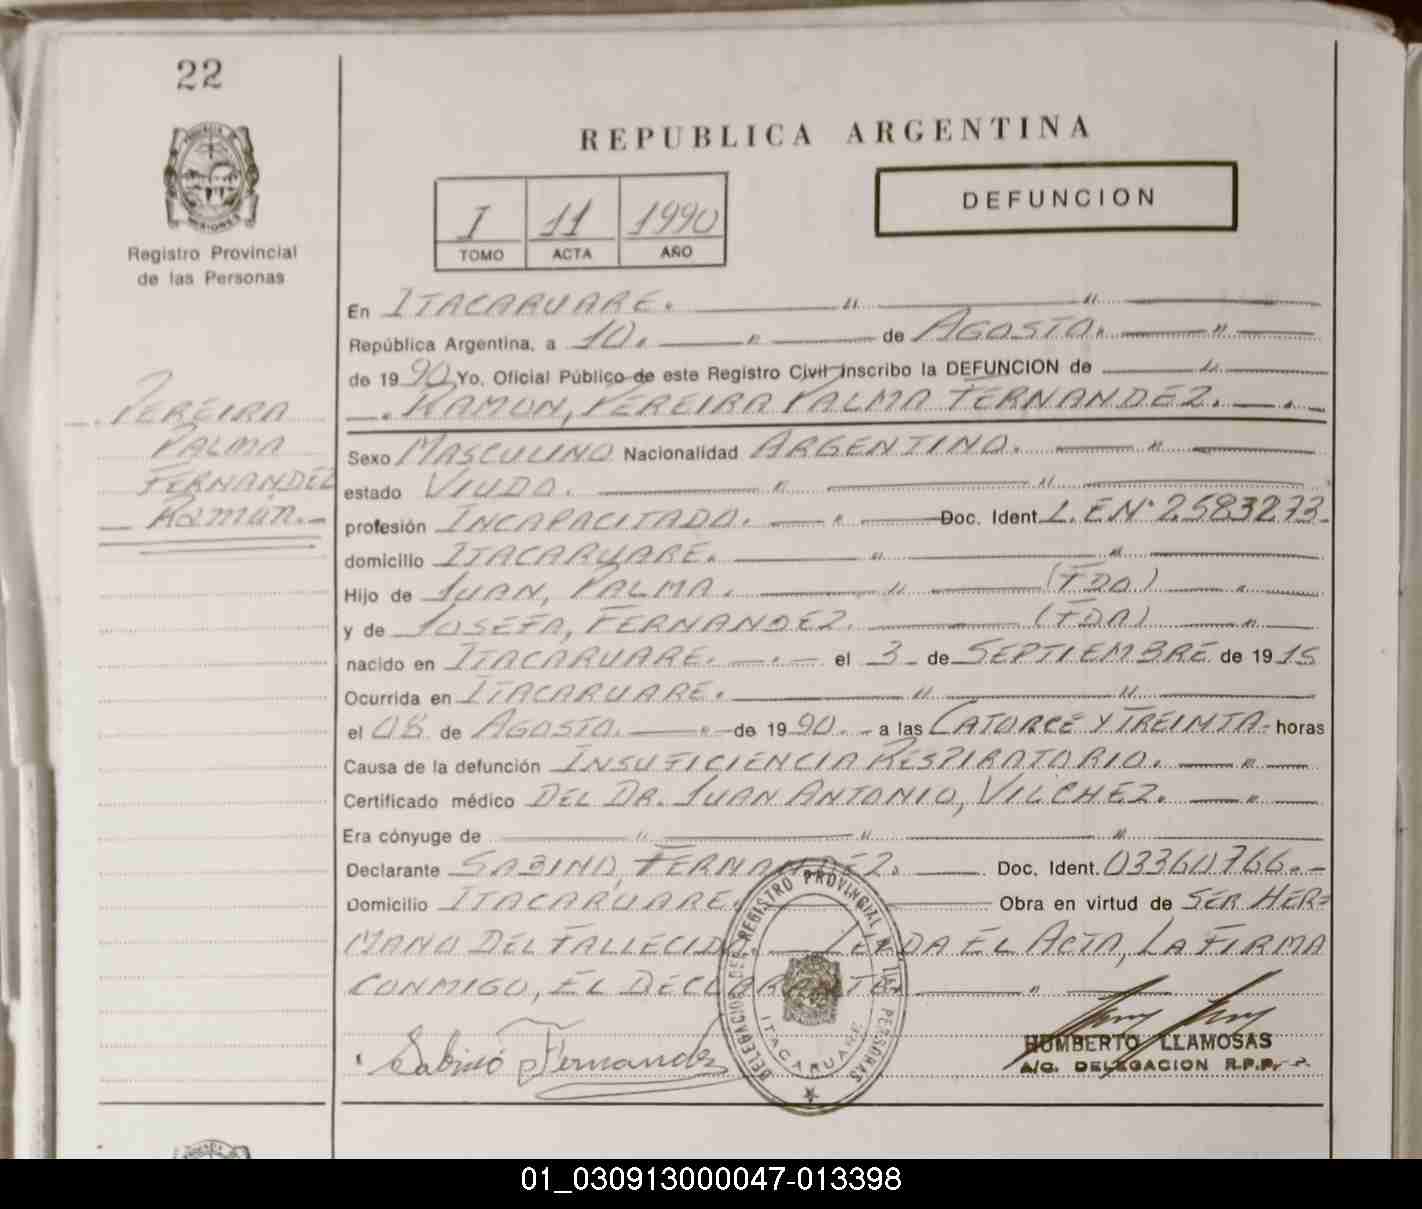 22
REPUBLICA ARGENTINA
DEFUNCION
I 11 1990
TOMO ACTA AÑO
Registro Provincial
de las Personas
En ITACARUARE. " "
República Argentina, a 10. " de AGOSTO. "
de 1990, Yo, Oficial Público de este Registro Civil inscribo la DEFUNCION de "
RAMON, PEREIRA PALMA FERNANDEZ.
PEREIRA
PALMA
FERNANDEZ
Ramón.
Sexo MASCULINO Nacionalidad ARGENTINO. "
estado VIUDO. " "
profesión INCAPACITADO. " Doc. Ident. L.E.Nº 2583273.
domicilio ITACARUARE. " "
Hijo de JUAN, PALMA. " (FDO) "
y de JOSEFA, FERNANDEZ. (FDA) "
nacido en ITACARUARE. el 3 de SEPTIEMBRE de 1915
Ocurrida en ITACARUARE. " "
el 08 de AGOSTO. " de 1990. a las CATORCE Y TREINTA horas
Causa de la defunción INSUFICIENCIA RESPIRATORIO. "
Certificado médico DEL DR. JUAN ANTONIO, VILCHEZ. "
Era cónyuge de " " "
Declarante SABINO, FERNANDEZ. Doc. Ident. 03360766.-
Domicilio ITACARUARE. Obra en virtud de SER HER=
MANO DEL FALLECIDO. LEIDA EL ACTA, LA FIRMA
CONMIGO, EL DECLARANTE. "
Sabino Fernandez
DELEGACION DEL REGISTRO PROVINCIAL DE LAS PERSONAS
ITACARUARE
HUMBERTO LLAMOSAS
A/C. DELEGACION R.P.P.
01_030913000047-013398